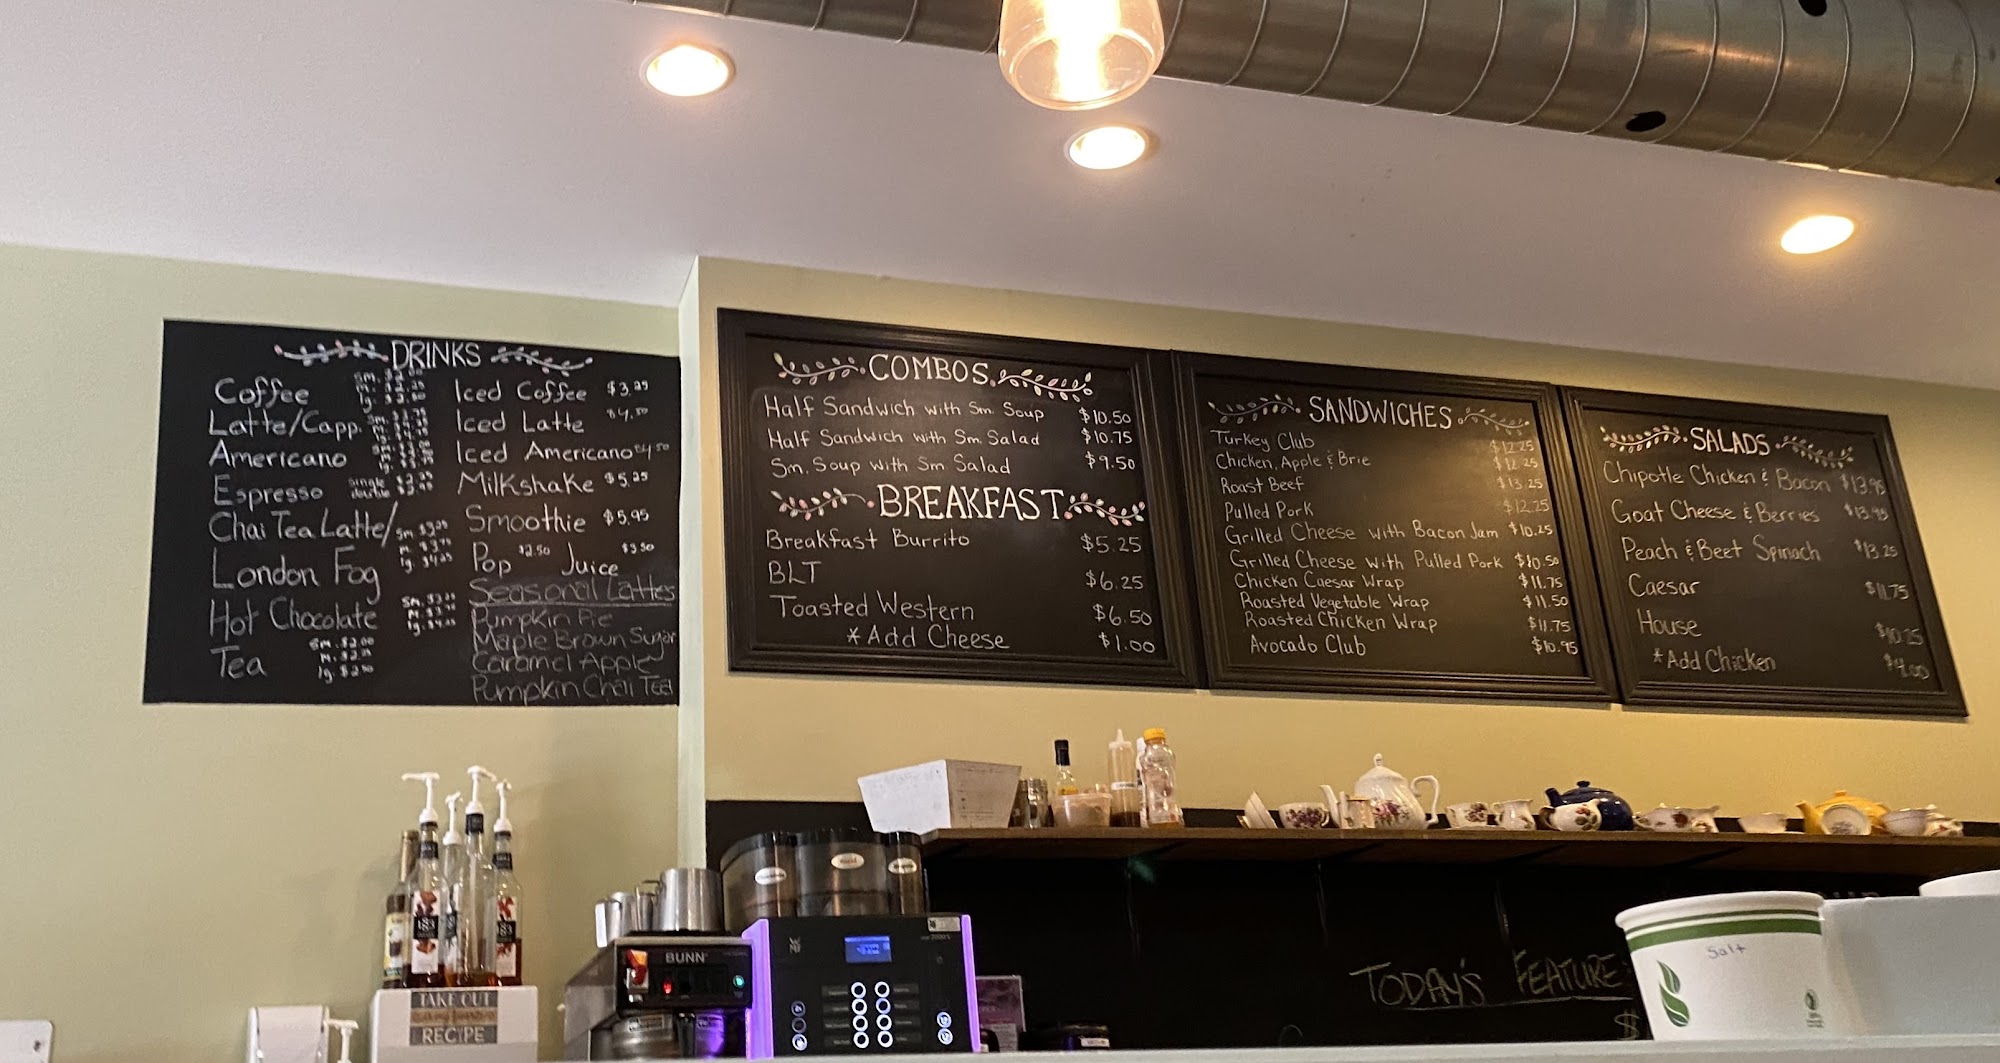 DRINKS
Coffee
Latte/Capp.
Americano
Espresso single
double
Chai Tea Latte/ Sm
London Fog
Hot Chocolate
Tea Sm. $2.00
Iced Coffee $3.25
Iced Latte $4.50
Iced Americano $4.50
Milkshake $5.25
Smoothie $5.95
Pop $2.50 Juice $3.50
Seasonal Lattes
Pumpkin Pie
Maple Brown Sugar
Caramel Apple
Pumpkin Chai Tea
COMBOS
Half Sandwich with Sm. Soup $10.50
Half Sandwich with Sm. Salad $10.75
Sm. Soup with Sm. Salad $9.50
BREAKFAST
Breakfast Burrito $5.25
BLT $6.25
Toasted Western $6.50
*Add Cheese $1.00
SANDWICHES
Turkey Club $12.25
Chicken, Apple & Brie $12.25
Roast Beef $13.25
Pulled Pork $12.25
Grilled Cheese with Bacon Jam $10.25
Grilled Cheese with Pulled Pork $10.50
Chicken Caesar Wrap $11.75
Roasted Vegetable Wrap $11.50
Roasted Chicken Wrap $11.75
Avocado Club $10.95
SALADS
Chipotle Chicken & Bacon $13.95
Goat Cheese & Berries $13.95
Peach & Beet Spinach $13.25
Caesar $11.75
House $10.25
*Add Chicken $4.00
TODAY'S FEATURE
$
Salt
BUNN
WMF
1883
1883
TAKE OUT
RECIPE